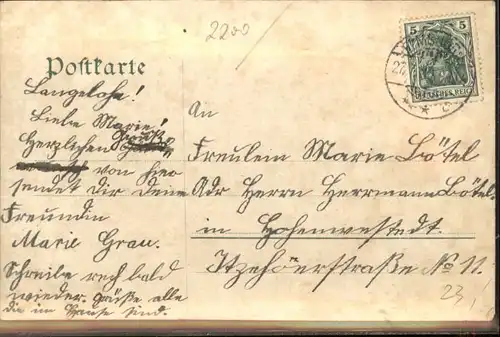 2200
5
DEUTSCHES REICH
Postkarte
Langelohe!
Liebe Marie!
Herzlichen Gruß
von hier
sendet dir deine
Freundin
Marie Grau.
Schreibe rech bald
wieder. Grüße alle
die im Hause sind.
An
Freulein Marie Bötel
Adr Herrn Herrmann Bötel
in Hohenwestedt.
Itzehöerstraße No 11.
23,